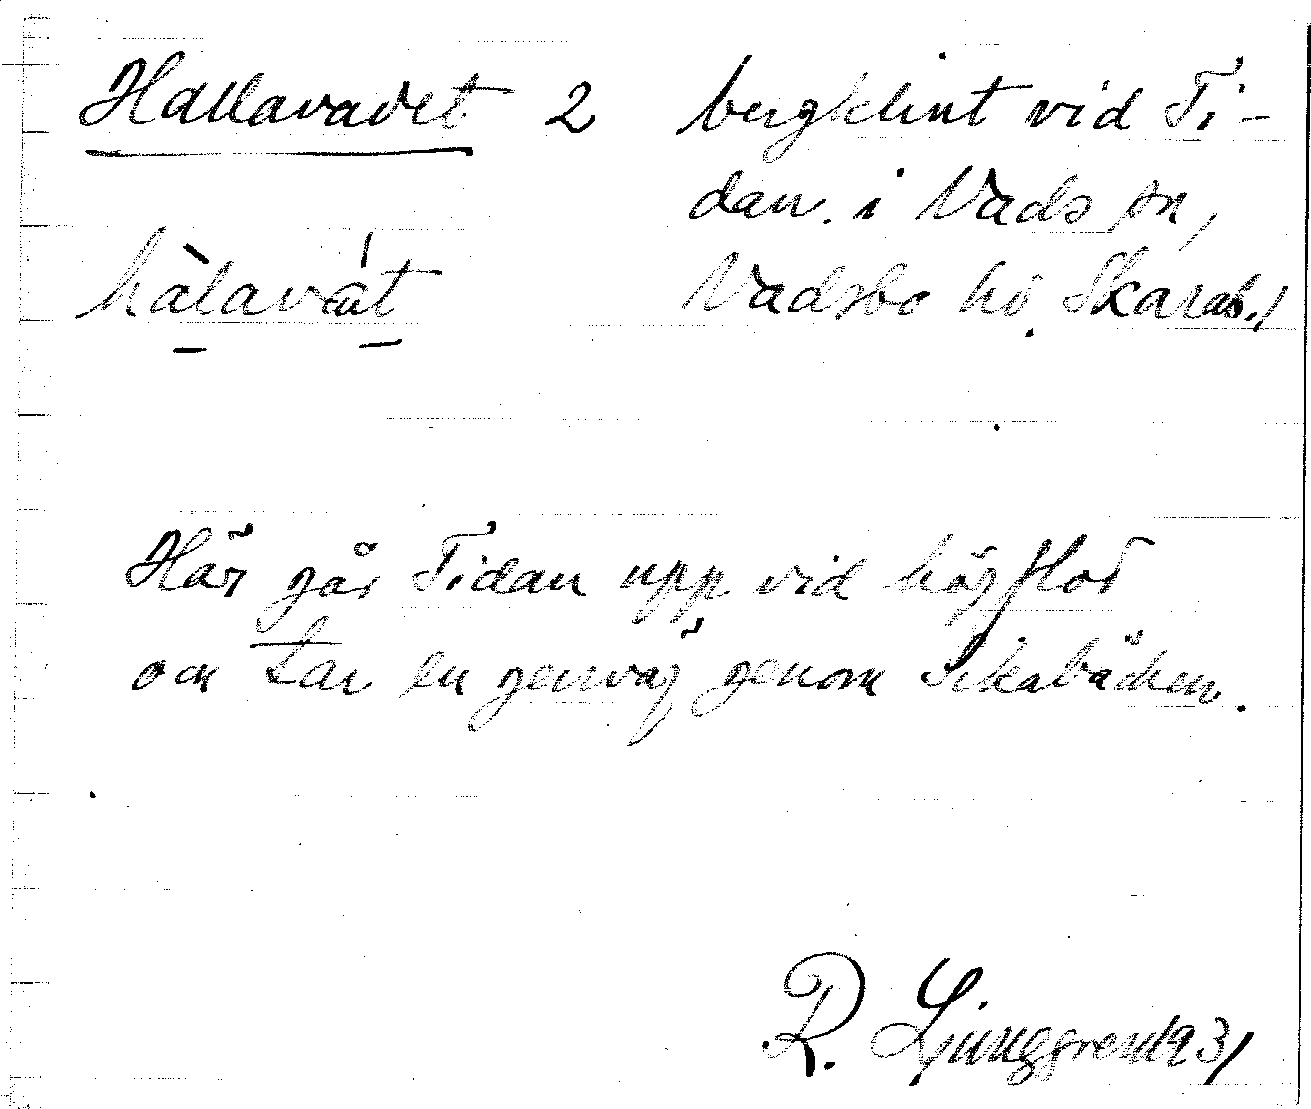 Hallavadet 2 bergklint vid Ti-
dan. i Vads sn,
hàlavát Vadsbo hd. Skarab.l
Här går Tidan upp vid högflod
och tar en genväg genom Sikabäcken.
R. Ljunggren 1931